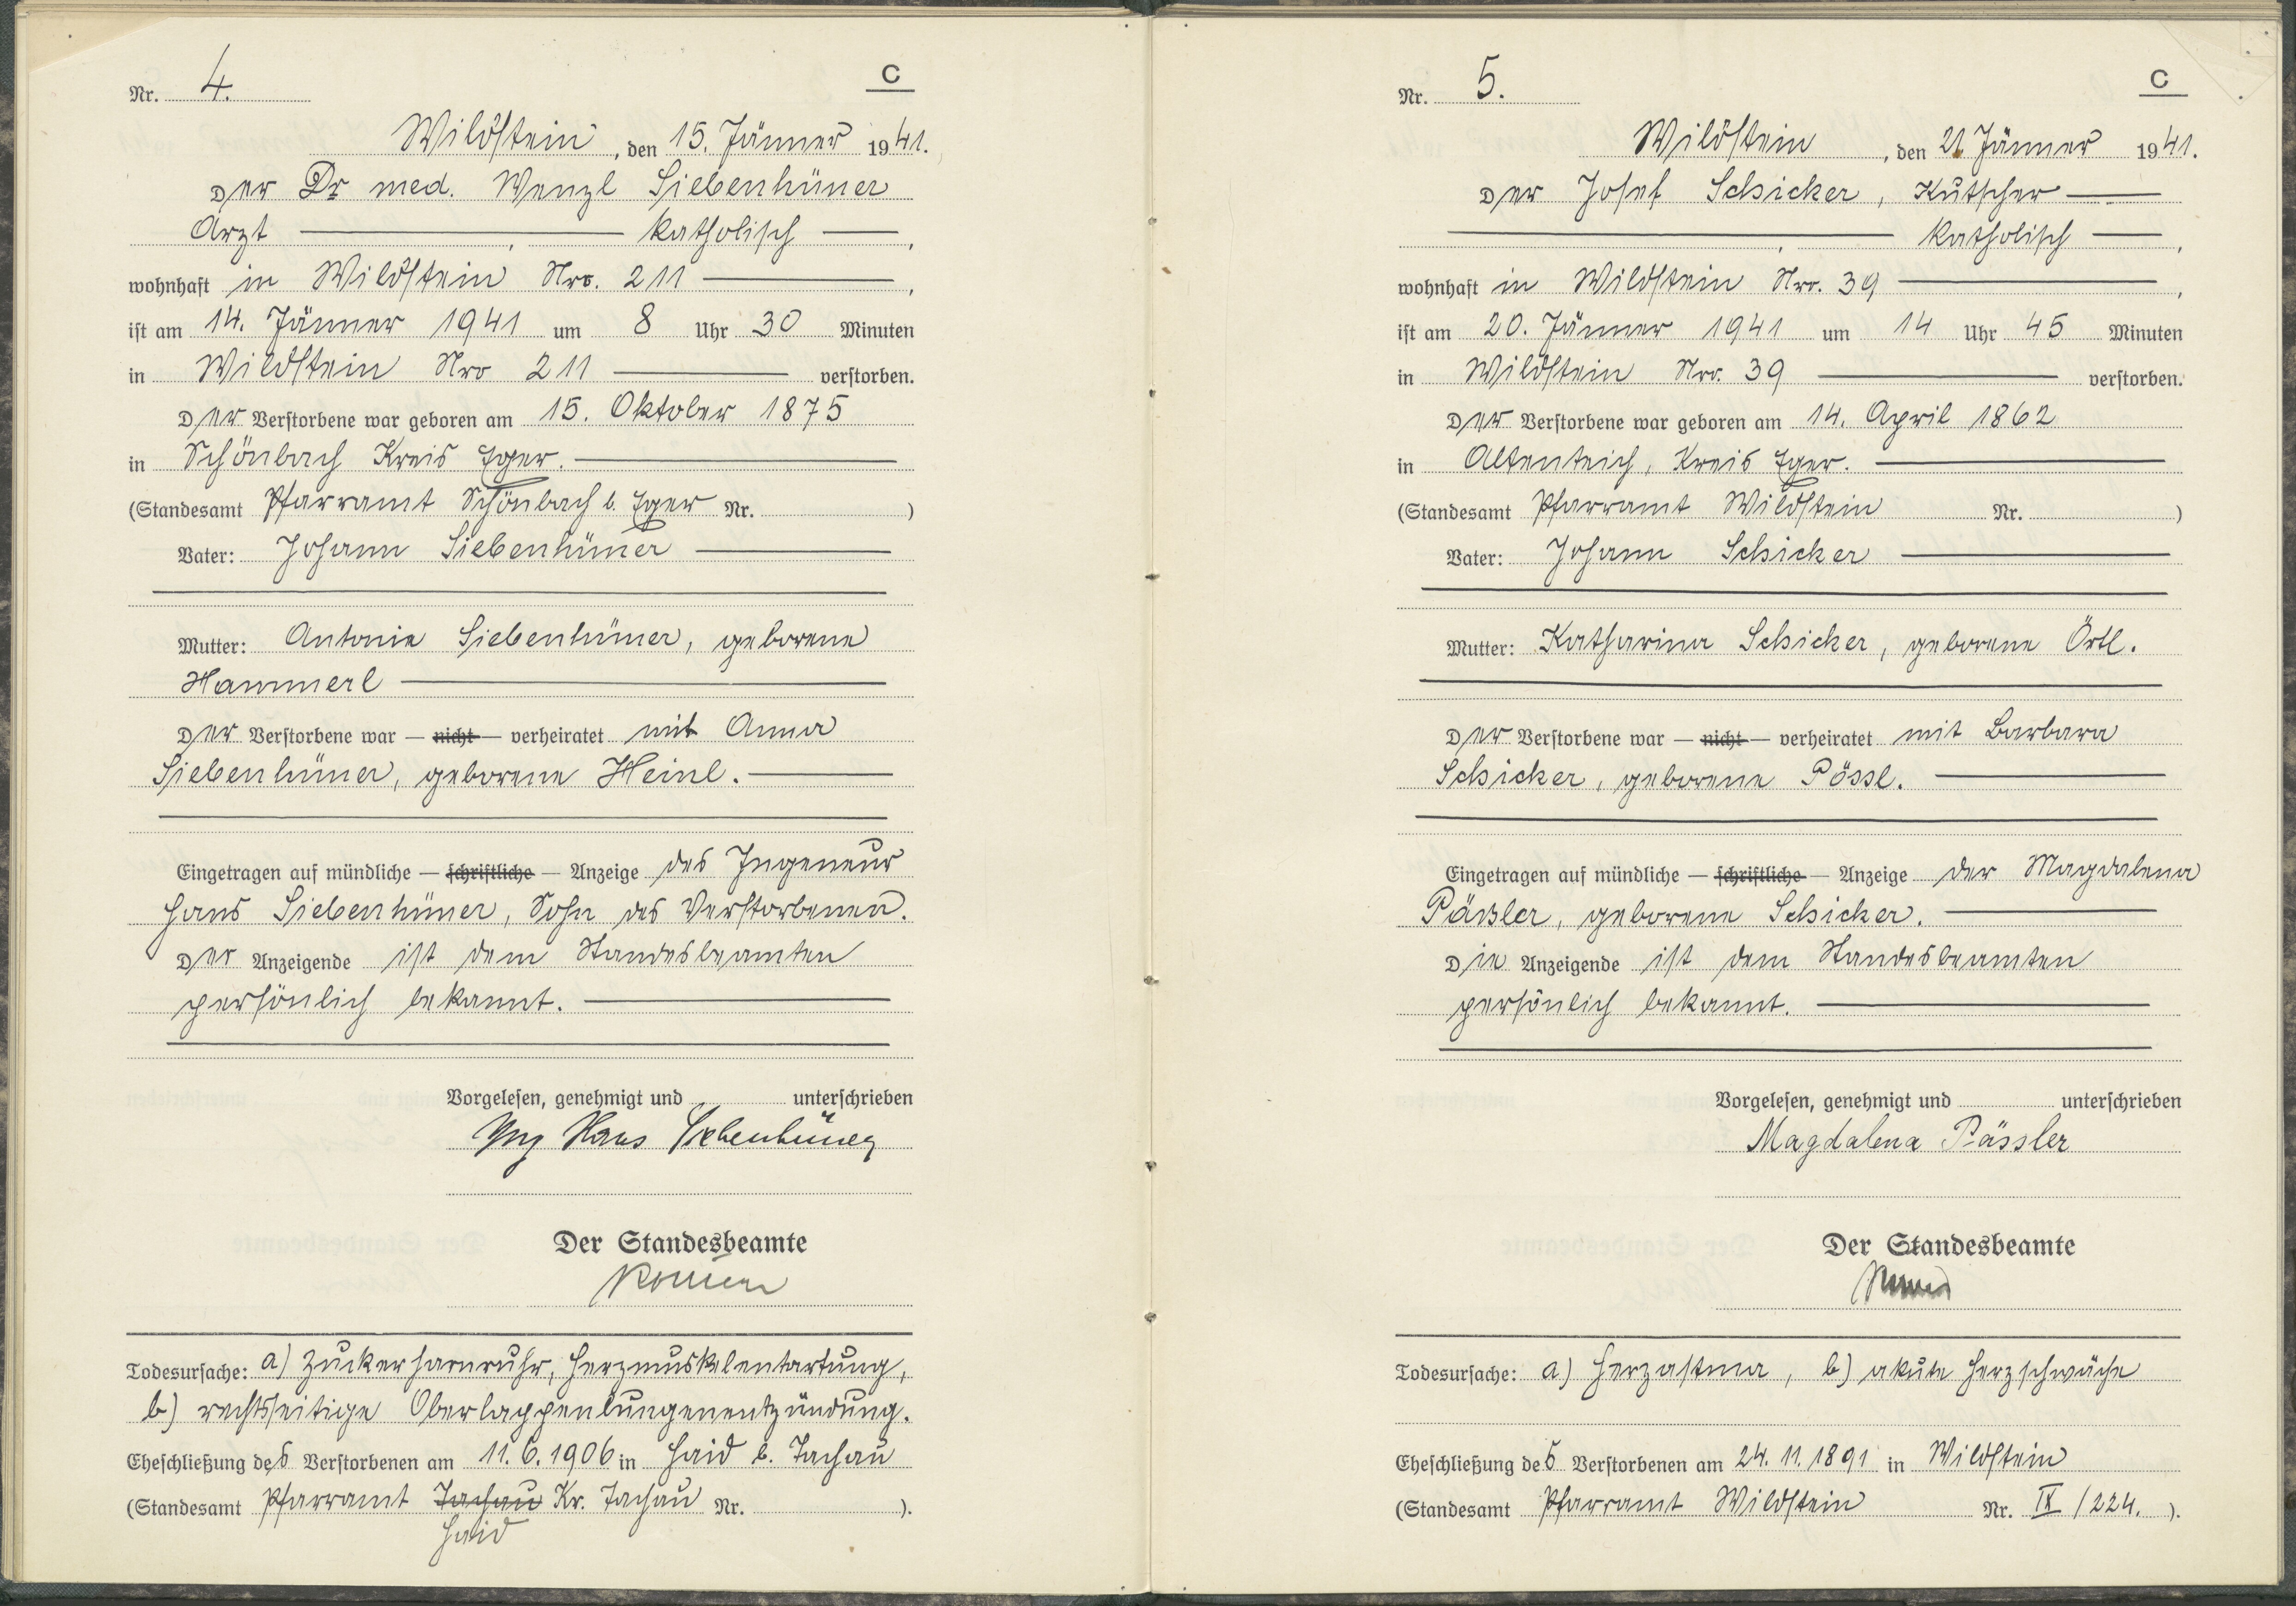 Nr. 4.
C
Wildstein, den 15. Jänner 1941.
Der Dr med. Wenzl Siebenhüner
Arzt — katholisch —,
wohnhaft in Wildstein Nro. 211 —,
ist am 14. Jänner 1941 um 8 Uhr 30 Minuten
in Wildstein Nro 211 — verstorben.
Der Verstorbene war geboren am 15. Oktober 1875
in Schönbach Kreis Eger. —
(Standesamt Pfarramt Schönbach b. Eger Nr. )
Vater: Johann Siebenhüner —
Mutter: Antonie Siebenhüner, geborene
Hammerl —
Der Verstorbene war — nicht — verheiratet mit Anna
Siebenhüner, geborene Heinl. —
Eingetragen auf mündliche — schriftliche — Anzeige des Ingeneur
Hans Siebenhüner, Sohn des Verstorbenen.
Der Anzeigende ist dem Standesbeamten
persönlich bekannt. —
Vorgelesen, genehmigt und unterschrieben
Ing Hans Siebenhüner
Der Standesbeamte
Todesursache: a) Zuckerharnruhr, Herzmuskelentartung,
b) rechtsseitige Oberlappenlungenentzündung.
Eheschließung des Verstorbenen am 11.6.1906 in Haid b. Tachau
(Standesamt Pfarramt Tachau Kr. Tachau Nr. ).
Haid
Nr. 5.
C
Wildstein, den 21 Jänner 1941.
Der Josef Schicker, Kutscher —
— katholisch —,
wohnhaft in Wildstein Nro. 39 —,
ist am 20. Jänner 1941 um 14 Uhr 45 Minuten
in Wildstein Nro. 39 — verstorben.
Der Verstorbene war geboren am 14. April 1862
in Altenteich, Kreis Eger. —
(Standesamt Pfarramt Wildstein Nr. )
Vater: Johann Schicker —
Mutter: Katharina Schicker, geborene Örtl.
Der Verstorbene war — nicht — verheiratet mit Barbara
Schicker, geborene Pössl. —
Eingetragen auf mündliche — schriftliche — Anzeige der Magdalena
Päßler, geborene Schicker. —
Die Anzeigende ist dem Standesbeamten
persönlich bekannt. —
Vorgelesen, genehmigt und unterschrieben
Magdalena Pässler
Der Standesbeamte
Todesursache: a) Herzastma, b) akute Herzschwäche
Eheschließung des Verstorbenen am 24. 11. 1891 in Wildstein
(Standesamt Pfarramt Wildstein Nr. IX /224. ).